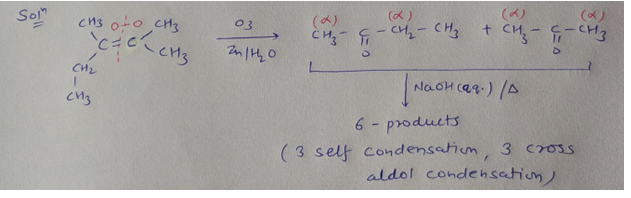 Solⁿ
CH3 O-O CH3
C=C
CH3
CH2
CH3
O3
Zn/H2O
(α) (α)
CH3-C-CH2-CH3
O
+
(α) (α)
CH3-C-CH3
O
NaOH(aq.)/Δ
6-products
(3 self condensation, 3 cross
aldol condensation)